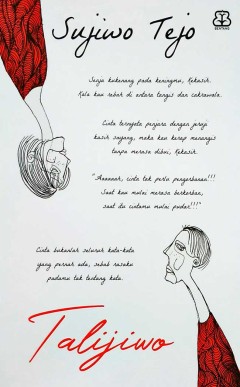 Sujiwo Tejo
BENTANG
Senja kukenang pada keningmu, Kekasih.
Kala kau rebah di antara tangis dan cakrawala.
Cinta terogoh penjara dengan jeruji
kasih sayang, maka kau kerap menangis
tanpa merasa dibui, Kekasih.
"Aaaaaah, cinta tak perlu pengorbanan!!!
Saat kau mulai merasa berkorban,
saat itu cintamu mulai pudar!!!"
Cinta bukanlah seluruh kata-kata
yang pernah ada, sebab rasaku
padamu tak tentang kata.
Talijiwo